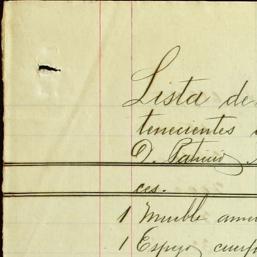 Lista de
tenecientes
D. Patricio
ces.
1 Mueble
1 Espejo